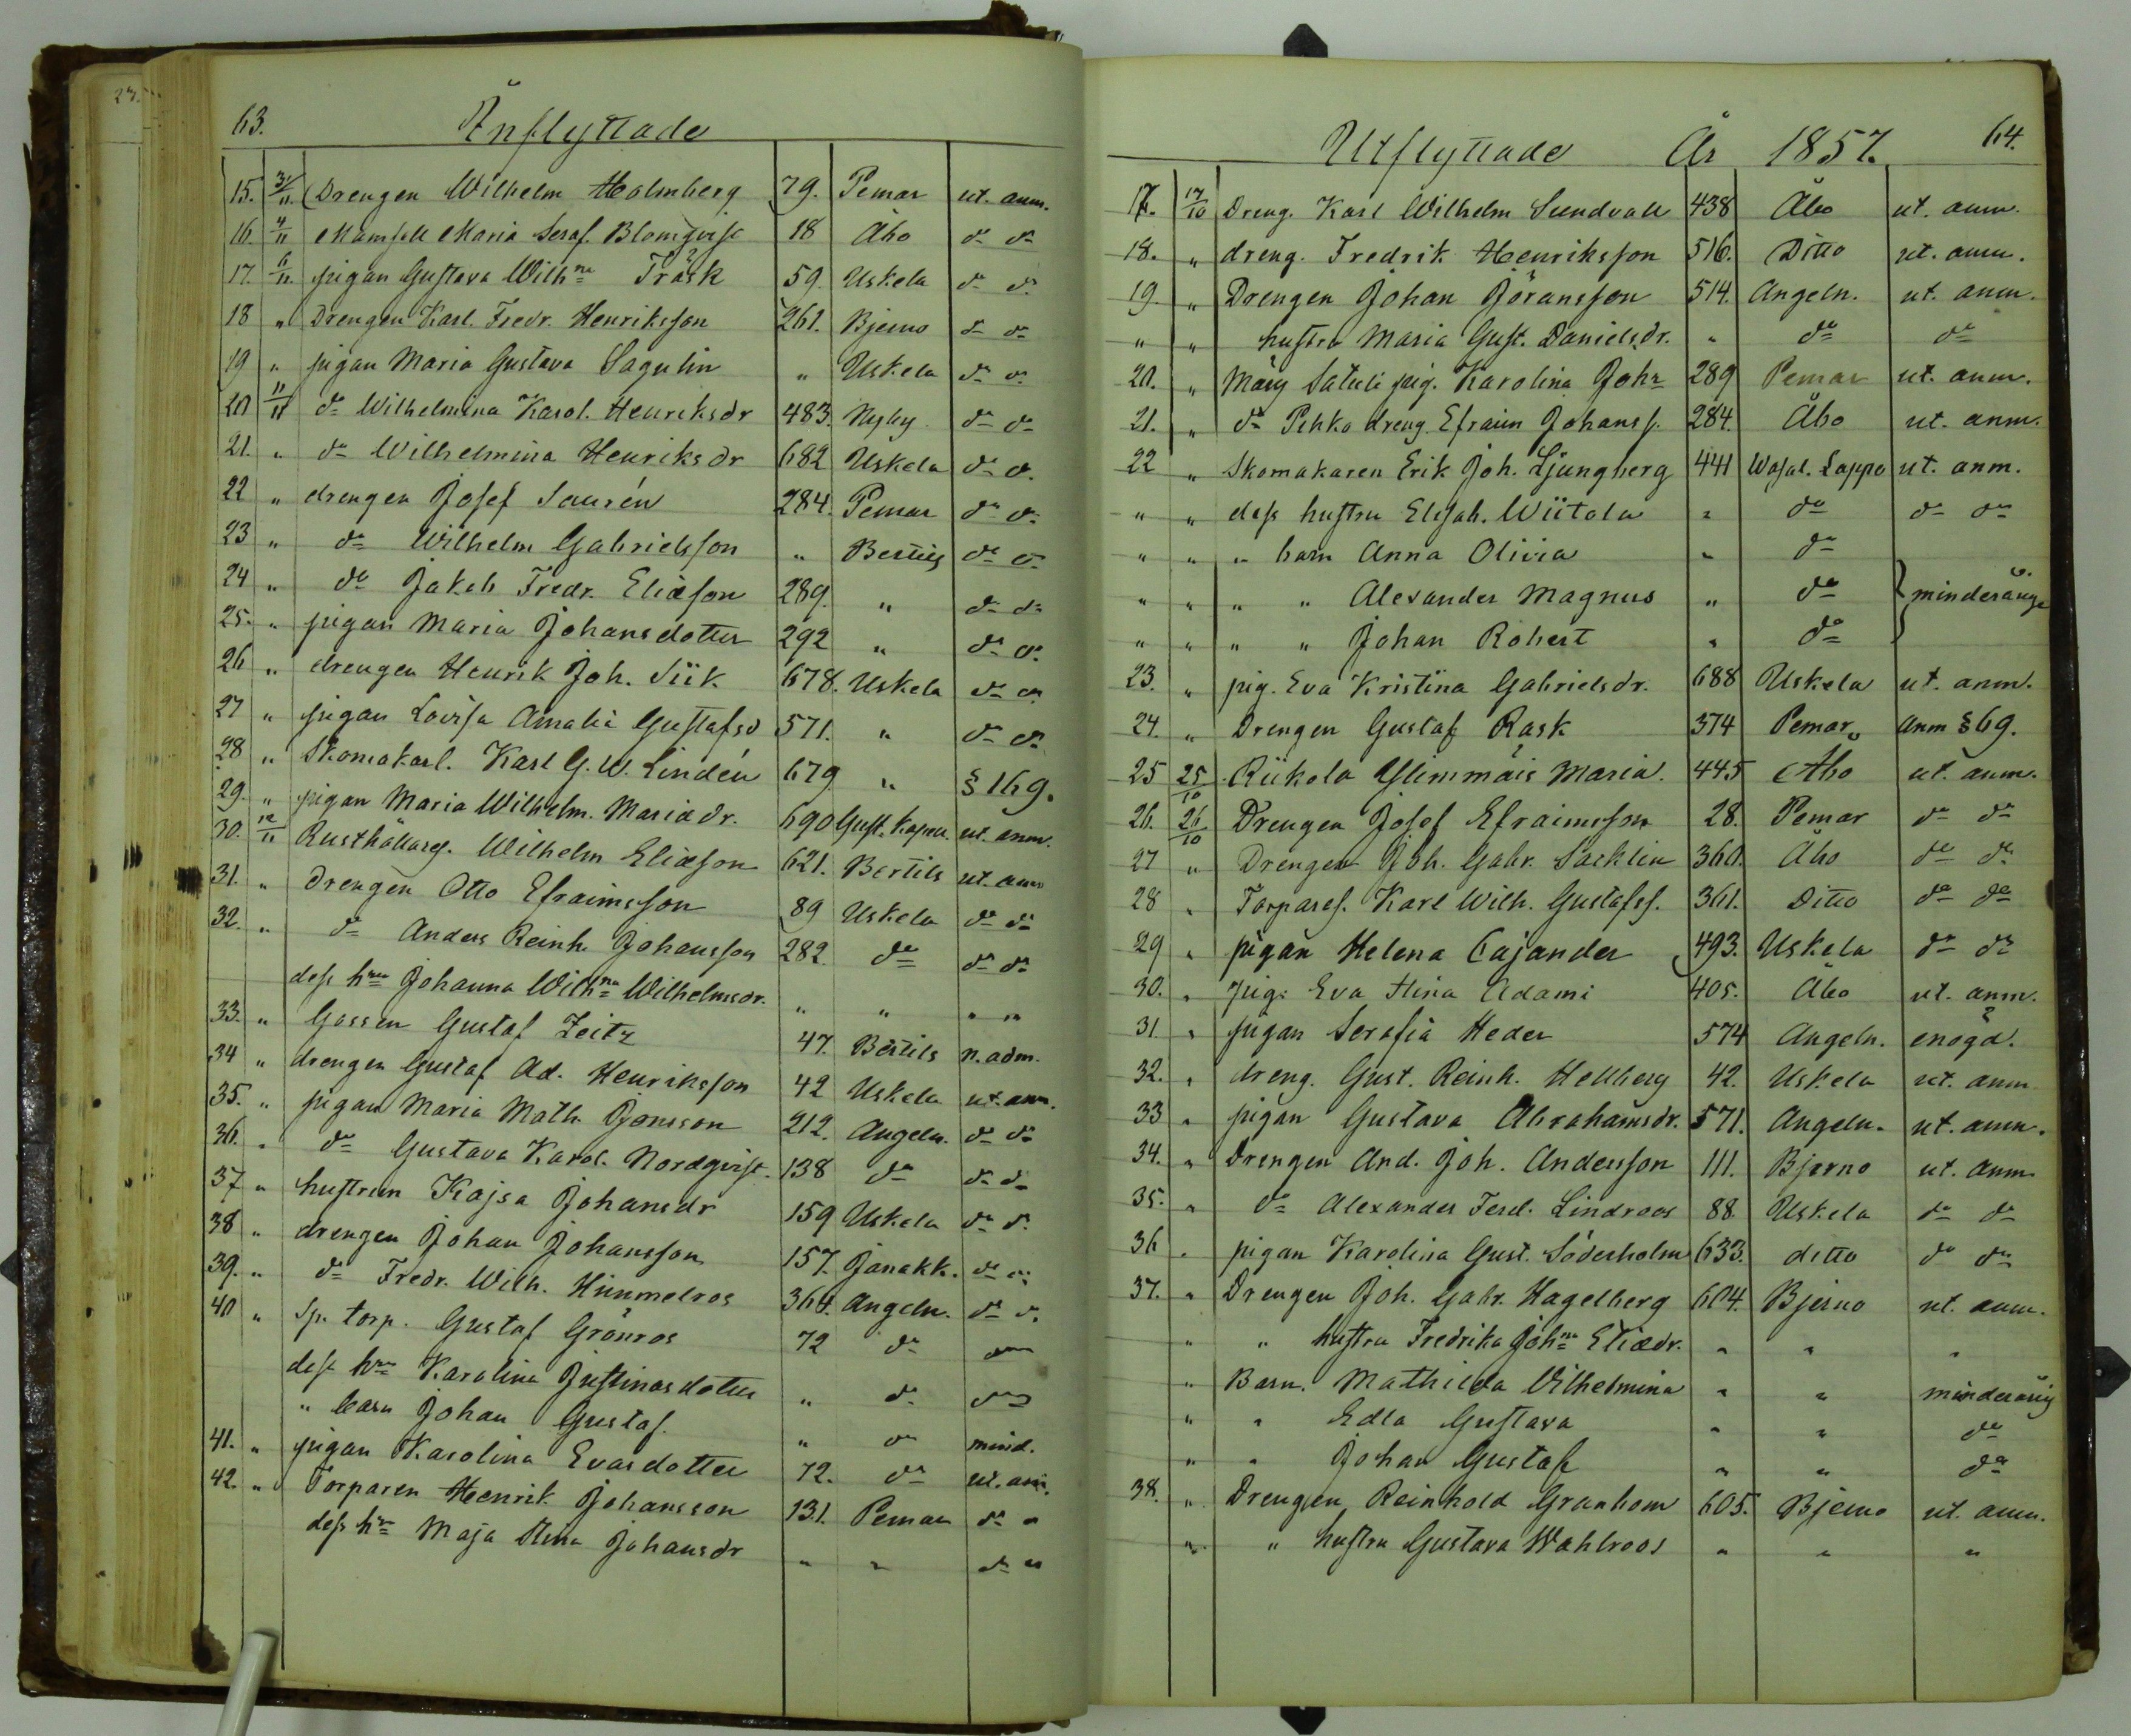 63. Inflyttade
15. 3/11. Drengen Wilhelm Holmberg 79. Pemar ut. anm.
16. 4/11 Mamsell Maria Seraf. Blomqvist 18 Åbo do do
17. 6/11. pigan Gustava Wilhna Träsk 59. Uskela do do
18 " Drengen Karl. Fredr. Henriksson 261. Bjerno do do
19 " pigan Maria Gustava Sagulin " Uskela do do
20 11/11 do Wilhelmina Karol. Henriksdr 483. Nyby do do
21. " do Wilhelmina Henriksdr 682 Uskela do do
22 " drengen Josef Saurén 284. Pemar do do
23 " do Wilhelm Gabrielsson " Bertils do do
24 " do Jakob Fredr. Eliæson 289. " do do
25. " pigan Maria Johansdotter 292 " do do
26 " drengen Henrik Joh. Siik 678. Uskela do do
27 " pigan Lovisa Amalia Gustafsd 571. " do do
28 " Skomakarl. Karl G. W. Lindén 679 " § 169.
29. " pigan Maria Wilhelm. Mariædr. 690 Gust. Kapell. ut. anm.
30. 12/11 Rusthållares. Wilhelm Eliæson 621. Bertils ut. anm
31. " Drengen Otto Efraimsson 89 Uskela do do
32. " do Anders Reinh. Johansson 282 do do do
dess hu Johanna Wilhna Wilhelmsdr. " " " "
33. " Gossen Gustaf Zeitz 47. Bertils n. adm.
34 " drengen Gustaf Ad. Henriksson 42 Uskela ut. anm.
35. " pigan Maria Math. Jonsson 212. Angeln. do do
36. " do Gustava Karol. Nordqvist 138 do do do
37 " hustrun Kajsa Johansdr 159 Uskela do do
38 " drengen Johan Johansson 157. Janakk. do do
39. " do Fredr. Wilh. Himmelros 364. Angeln. do do
40 " Sp. torp. Gustaf Grönros 72 do do
dess hu Karolina Justinasdotter " do do
" barn Johan Gustaf. " do mind.
41. " pigan Karolina Evasdotter 72. do ut. anm.
42. " Torparen Henrik Johansson 131. Pemar do "
dess hu Maja Stina Johansdr " " do "
Utflyttade År 1857. 64.
17. 17/10 Dreng. Karl Wilhelm Sundvall 438 Åbo ut. anm.
18. " dreng. Fredrik Henriksson 516. Ditto ut. anm.
19. " Drengen Johan Jöransson 514. Angeln. ut. anm.
" " hustru Maria Gust. Danielsdr. " do do
20. " Märy Satuli pig. Karolina Joh: 289 Pemar ut. anm.
21. " do Pehko dreng. Efraim Johanss. 284. Åbo ut. anm.
22 " Skomakaren Erik Joh. Ljungberg 441 Wasal. Lappo ut. anm.
" " dess hustru Elisab. Wiitala " do do do
" " " barn Anna Olivia " do
" " " " Alexander Magnus " do } minderåriga
" " " " Johan Robert " do
23. " pig. Eva Kristina Gabrielsdr. 688 Uskela ut. anm.
24. " Drengen Gustaf Rask 374 Pemar anm § 69.
25 25/10 Riikola Ylimmäis Maria. 445 Åbo ut. anm.
26. 26/10 Drengen Josef Efraimsson 28. Pemar do do
27 " Drengen Joh. Gabr. Sacklin 360. Åbo do do
28 " Torpares. Karl Wilh. Gustafss. 361. Ditto do do
29 " pigan Helena Cajander 493. Uskela do do
30. " pig. Eva Stina Adami 405. Åbo ut. anm.
31. " pigan Serafia Heder 574 Angeln. enögd.
32. " dreng. Gust. Reinh. Hellberg 42. Uskela ut. anm
33 " pigan Gustava Abrahamsdr. 571. Angeln. ut. anm.
34. " Drengen And. Joh. Andersson 111. Bjerno ut. anm.
35. " do Alexander Ferd. Lindroos 88 Uskela do do
36 " pigan Karolina Gust. Söderholm 633. ditto do do
37. " Drengen Joh. Gabr. Hagelberg 604. Bjerno ut. anm.
" " hustru Fredrika Johna Eliædr. " " "
" Barn. Mathilda Vilhelmina " " minderårig
" " Edla Gustava " " do
" " Johan Gustaf " " do
38. " Drengen Reinhold Granbom 605. Bjerno ut. anm.
" " hustru Gustava Wahlroos " " "